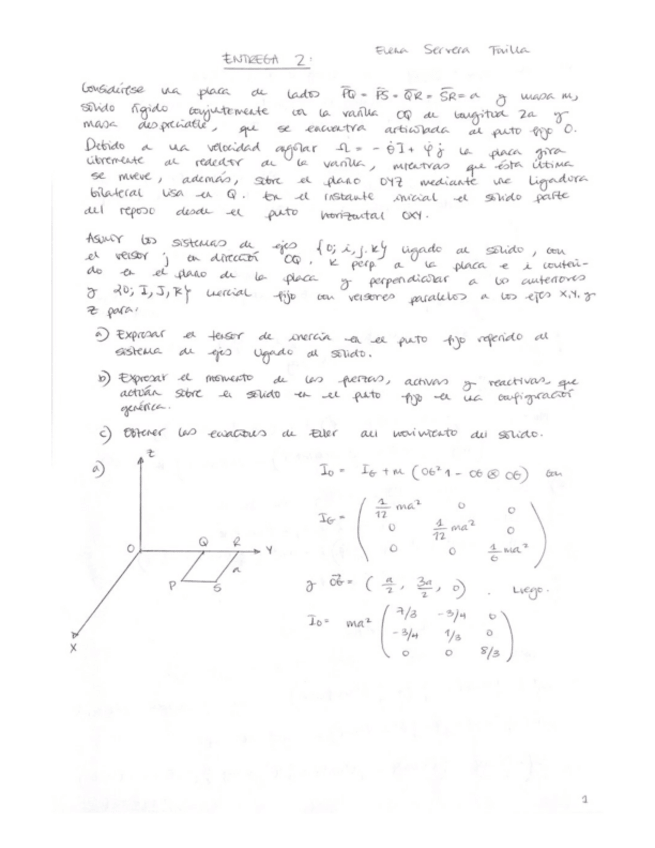 Elena Servera
ENTREGA 2:
Considérese una placa de lados PQ = PS = QR = SR = a y masa m,
sólido rígido conjuntamente con la varilla OQ de longitud 2a y
masa despreciable, que se encuentra articulada al punto fijo O.
Debido a una velocidad angular Ω = - θ̇ I + φ̇ j la placa gira
libremente al rededor de la varilla, mientras que ésta última
se mueve, además, sobre el plano OYZ mediante una ligadura
bilateral lisa en Q. En el instante inicial el sólido parte
del reposo desde el punto horizontal OXY.
Asumir los sistemas de ejes {O; i, j, k} ligado al sólido, con
el versor j en dirección OQ, k perp. a la placa e i conteni-
do en el plano de la placa y perpendicular a los anteriores
y {O; I, J, K} inercial fijo con versores paralelos a los ejes X, Y, y
Z para:
a) Expresar el tensor de inercia en el punto fijo referido al
sistema de ejes ligado al sólido.
b) Expresar el momento de las fuerzas, activas y reactivas, que
actúan sobre el sólido en el punto fijo en una configuración
genérica.
c) Obtener las ecuaciones de Euler del movimiento del sólido.
a)
Z
O
Q R
Y
P S a
X
I_O = I_G + m (OG² 1 - OG ⊗ OG) con
I_G = ( 1/12 ma² 0 0
0 1/12 ma² 0
0 0 1/6 ma² )
y OG = ( a/2, 3a/2, 0 ) . Luego.
I_O = ma² ( 7/3 -3/4 0
-3/4 1/3 0
0 0 8/3 )
1